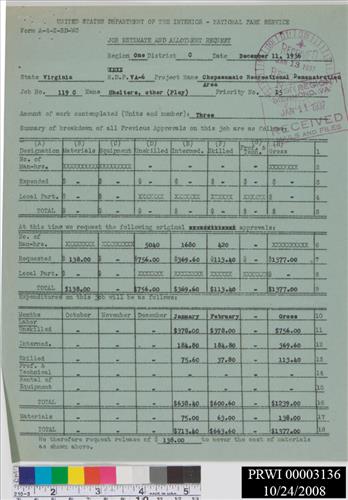 UNITED STATES DEPARTMENT OF THE INTERIOR - NATIONAL PARK SERVICE
JOB ESTIMATE AND ALLOTMENT REQUEST
Region One District C Date December 11, 1936
XXXX
State Virginia R.D.P. VA-6 Project Name Chopawamsic Recreational Demonstration Area
Job No. 119 C Name Shelters, other (Play) Priority No. 25
Amount of work contemplated (Units and number): Three
Summary of breakdown of all Previous Approvals on this job are as follows
(A) (B) (C) (D) (E) (F) (H)
Designation Materials Equipment Unskilled Intermed. Skilled Gross 1
No. of Man-hrs. XXXXXXXX XXXXXXXX - - - - 2
Expended $ - $ - $ - $ - $ - $ - $ - 3
Local Part. $ - $ - $ - XXXXX XXXXX XXXXX $ - 4
TOTAL $ - $ - $ - $ - $ - $ - $ - 5
At this time we request the following original approvals:
No. of Man-hrs. XXXXXXXX XXXXXXXX 5040 1680 420 - 6
Requested $ 138.00 $ - $756.00 $369.60 $113.40 $ - $1377.00 7
Local Part. $ - $ - $ - XXXXX XXXXX XXXXX $ - 8
TOTAL $138.00 $ - $756.00 $369.60 $113.40 $ - $1377.00 9
Expenditures on this job will be as follows:
Months October November December January February - Gross 10
Labor
Unskilled - - - $378.00 $378.00 - $756.00 11
Intermed. - - - 184.80 184.80 - 369.60 12
Skilled - - - 75.60 37.80 - 113.40 13
Prof. & Technical - - - - - - - 14
Rental of Equipment - - - - - - - 15
TOTAL - - - $638.40 $600.60 - $1239.00 16
Materials - - - 75.00 63.00 - 138.00 17
TOTAL - - - $713.40 $663.60 - $1377.00 18
We therefore request release of $ 138.00 to cover the cost of materials
as shown above.
RECEIVED
JAN 11 1937
RECEIVED
PRWI 00003136
10/24/2008